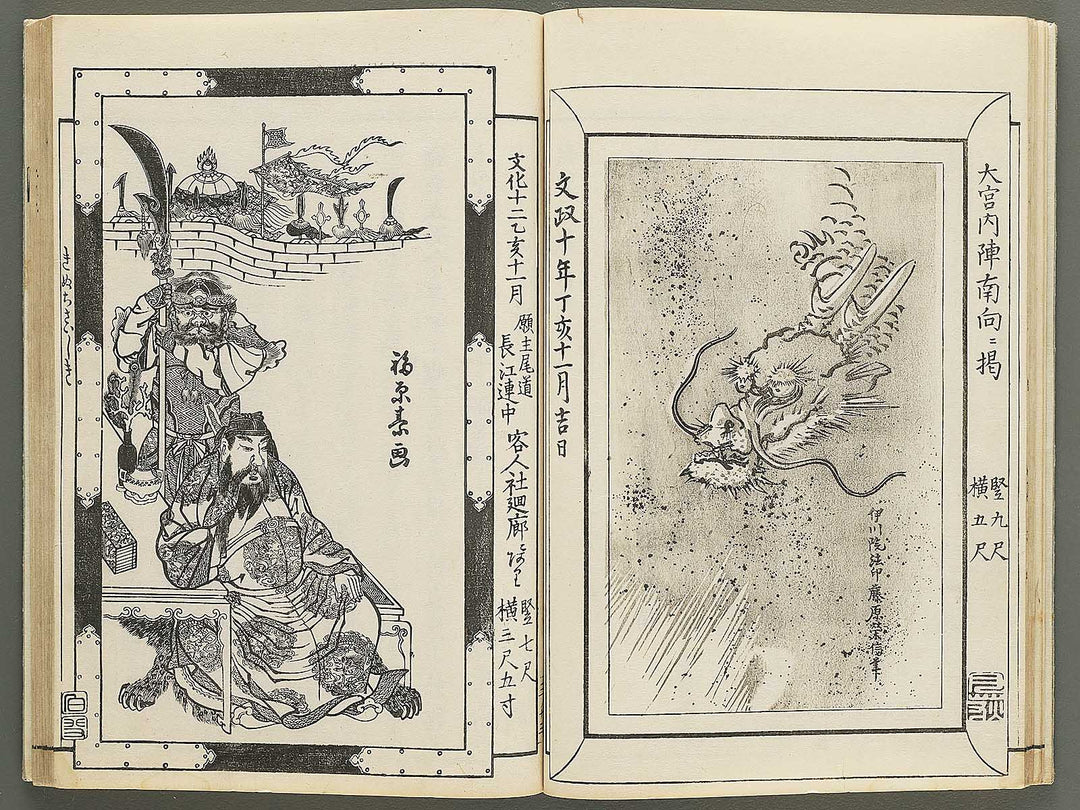 大宮内陣南向ニ掲
竪九尺
横五尺
伊川院法印藤原栄信筆
文政十年丁亥十一月吉日
文化十二乙亥十一月
願主尾道
長江連中
客人社廻廊
竪七尺
横三尺五寸
福原素画